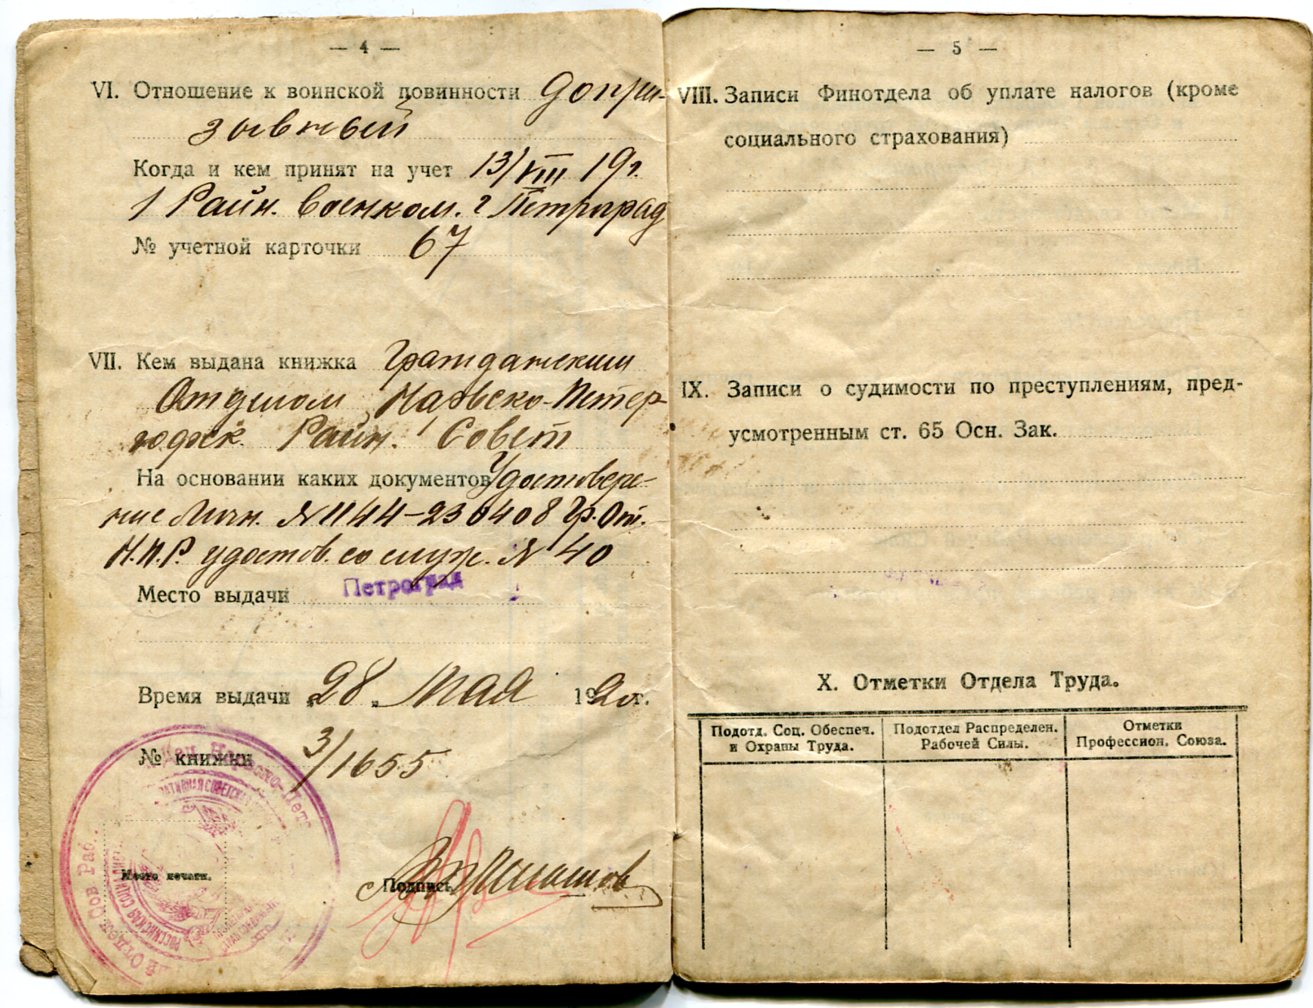 — 4 —
VI. Отношение к воинской повинности допри-
зывный
Когда и кем принят на учет 13/VIII 19г.
1 Райн. Военком. г Петроград
№ учетной карточки 67
VII. Кем выдана книжка Гражданским
Отделом Нарвско-Петер-
гофск. Райн. Совет
На основании каких документов Удостовере-
ние Личн. №1144-230408 Гр. От.
Н.П.Р. удостов. со служ. № 40
Место выдачи Петроград
Время выдачи „28„ Мая 192 г.
№ книжки 3/1655
Место печати.
Подпись
— 5 —
VIII. Записи Финотдела об уплате налогов (кроме
социального страхования)
IX. Записи о судимости по преступлениям, пред-
усмотренным ст. 65 Осн. Зак.
X. Отметки Отдела Труда.
Подотд. Соц. Обеспеч.
и Охраны Труда.
Подотдел Распределен.
Рабочей Силы.
Отметки
Профессион. Союза.